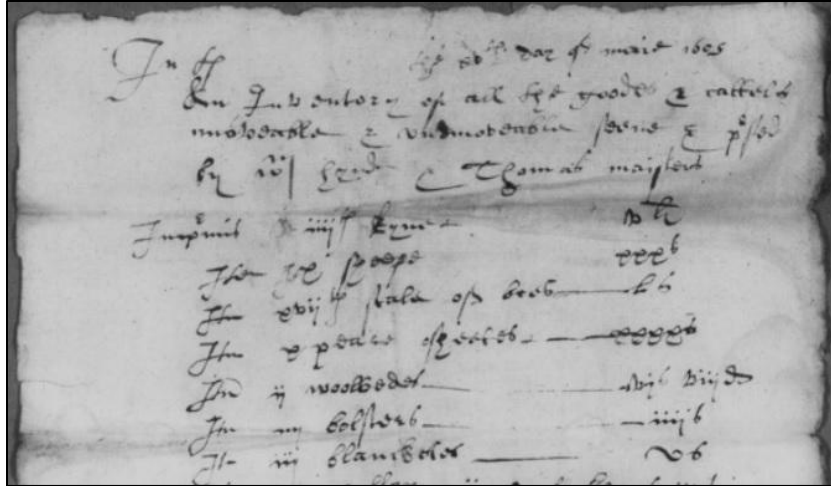 In th the day of maie 1605
An Inventory of all the goodes & cattels
moveable & vnmoveable seene & prsed
by & Thomas maisters
Inprmis iiij kyne vli
Itm xx sheepe xxxs
Itm xvij stale of bees ls
Itm x peare of sheetes xxxxs
Itm ij woolbedes vijs viijd
Itm iij bolsters iiijs
Itm iij blanketes vs